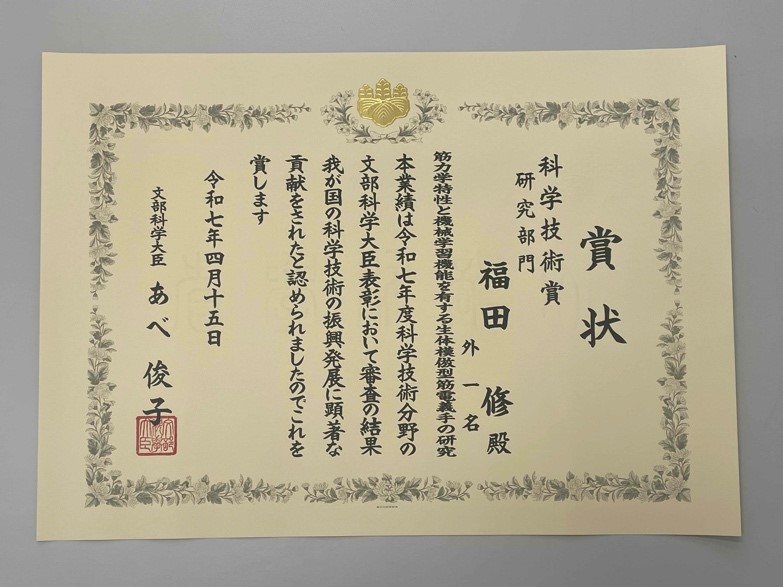 賞状
科学技術賞
研究部門
福田 修 殿
外一名
筋力学特性と機械学習機能を有する生体模倣型筋電義手の研究
本業績は令和七年度科学技術分野の
文部科学大臣表彰において審査の結果
我が国の科学技術の振興発展に顕著な
貢献をされたと認められましたのでこれを
賞します
令和七年四月十五日
文部科学大臣 あべ 俊子